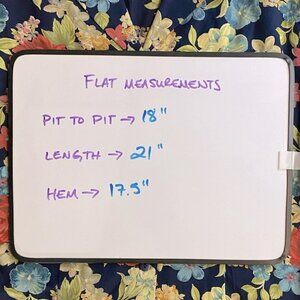 FLAT MEASUREMENTS
PIT TO PIT → 18"
LENGTH → 21"
HEM → 17.5"